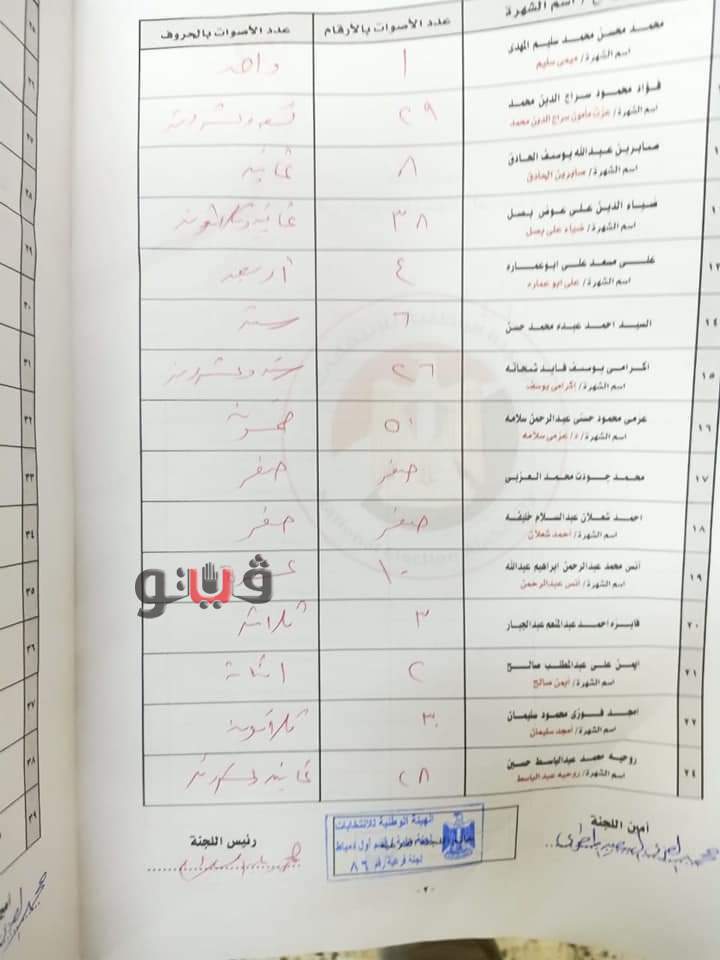 / اسم الشهرة
عدد الأصوات بالأرقام
عدد الأصوات بالحروف
محمد محسن محمد سليم المهدى
اسم الشهرة/ ميمى سليم
١
واحد
فؤاد محمود سراج الدين محمد
اسم الشهرة/ عزت مأمون سراج الدين محمد
٢٩
تسعه وعشرون
صابرين عبدالله يوسف الحاذق
اسم الشهرة/ صابرين الحاذق
٨
ثمانيه
ضياء الدين على عوض بصل
اسم الشهرة/ ضياء على بصل
٣٨
ثمانيه وثلاثون
١٣
على مسعد على ابوعماره
اسم الشهرة/ على ابو عماره
٤
أربعه
١٤
السيد احمد عبده محمد حسن
٦
سته
١٥
اكرامى يوسف فايد شحاته
اسم الشهرة/ إكرامى يوسف
٢٦
سته وعشرون
١٦
عزمى محمود حسنى عبدالرحمن سلامه
اسم الشهرة/ د/ عزمى سلامه
٥٠
خمسون
١٧
محمد جودت محمد العزبى
صفر
صفر
١٨
احمد شعلان عبدالسلام خليفه
اسم الشهرة/ أحمد شعلان
صفر
صفر
١٩
أنس محمد عبدالرحمن ابراهيم عبدالله
اسم الشهرة/ أنس عبدالرحمن
١٠
ڤيتو
٢٠
فايزه احمد عبدالمنعم عبدالجبار
٣
ثلاثه
٢١
ايمن على عبدالمطلب صالح
اسم الشهرة/ أيمن صالح
٢
اثنان
٢٢
امجد فوزى محمود سليمان
اسم الشهرة/ أمجد سليمان
٣٠
ثلاثون
٢٤
روحيه محمد عبدالباسط حسين
اسم الشهرة/ روحيه عبد الباسط
٢٨
ثمانيه وعشرون
أمين اللجنة
الهيئة الوطنية للانتخابات
أول دمياط
لجنة فرعية رقم ٨٦
رئيس اللجنة
٢٠
٢٦
٢٧
٢٨
٢٩
٣٠
٣١
٣٢
٣٣
٣٤
٣٥
٣٦
٣٧
٣٨
٣٩